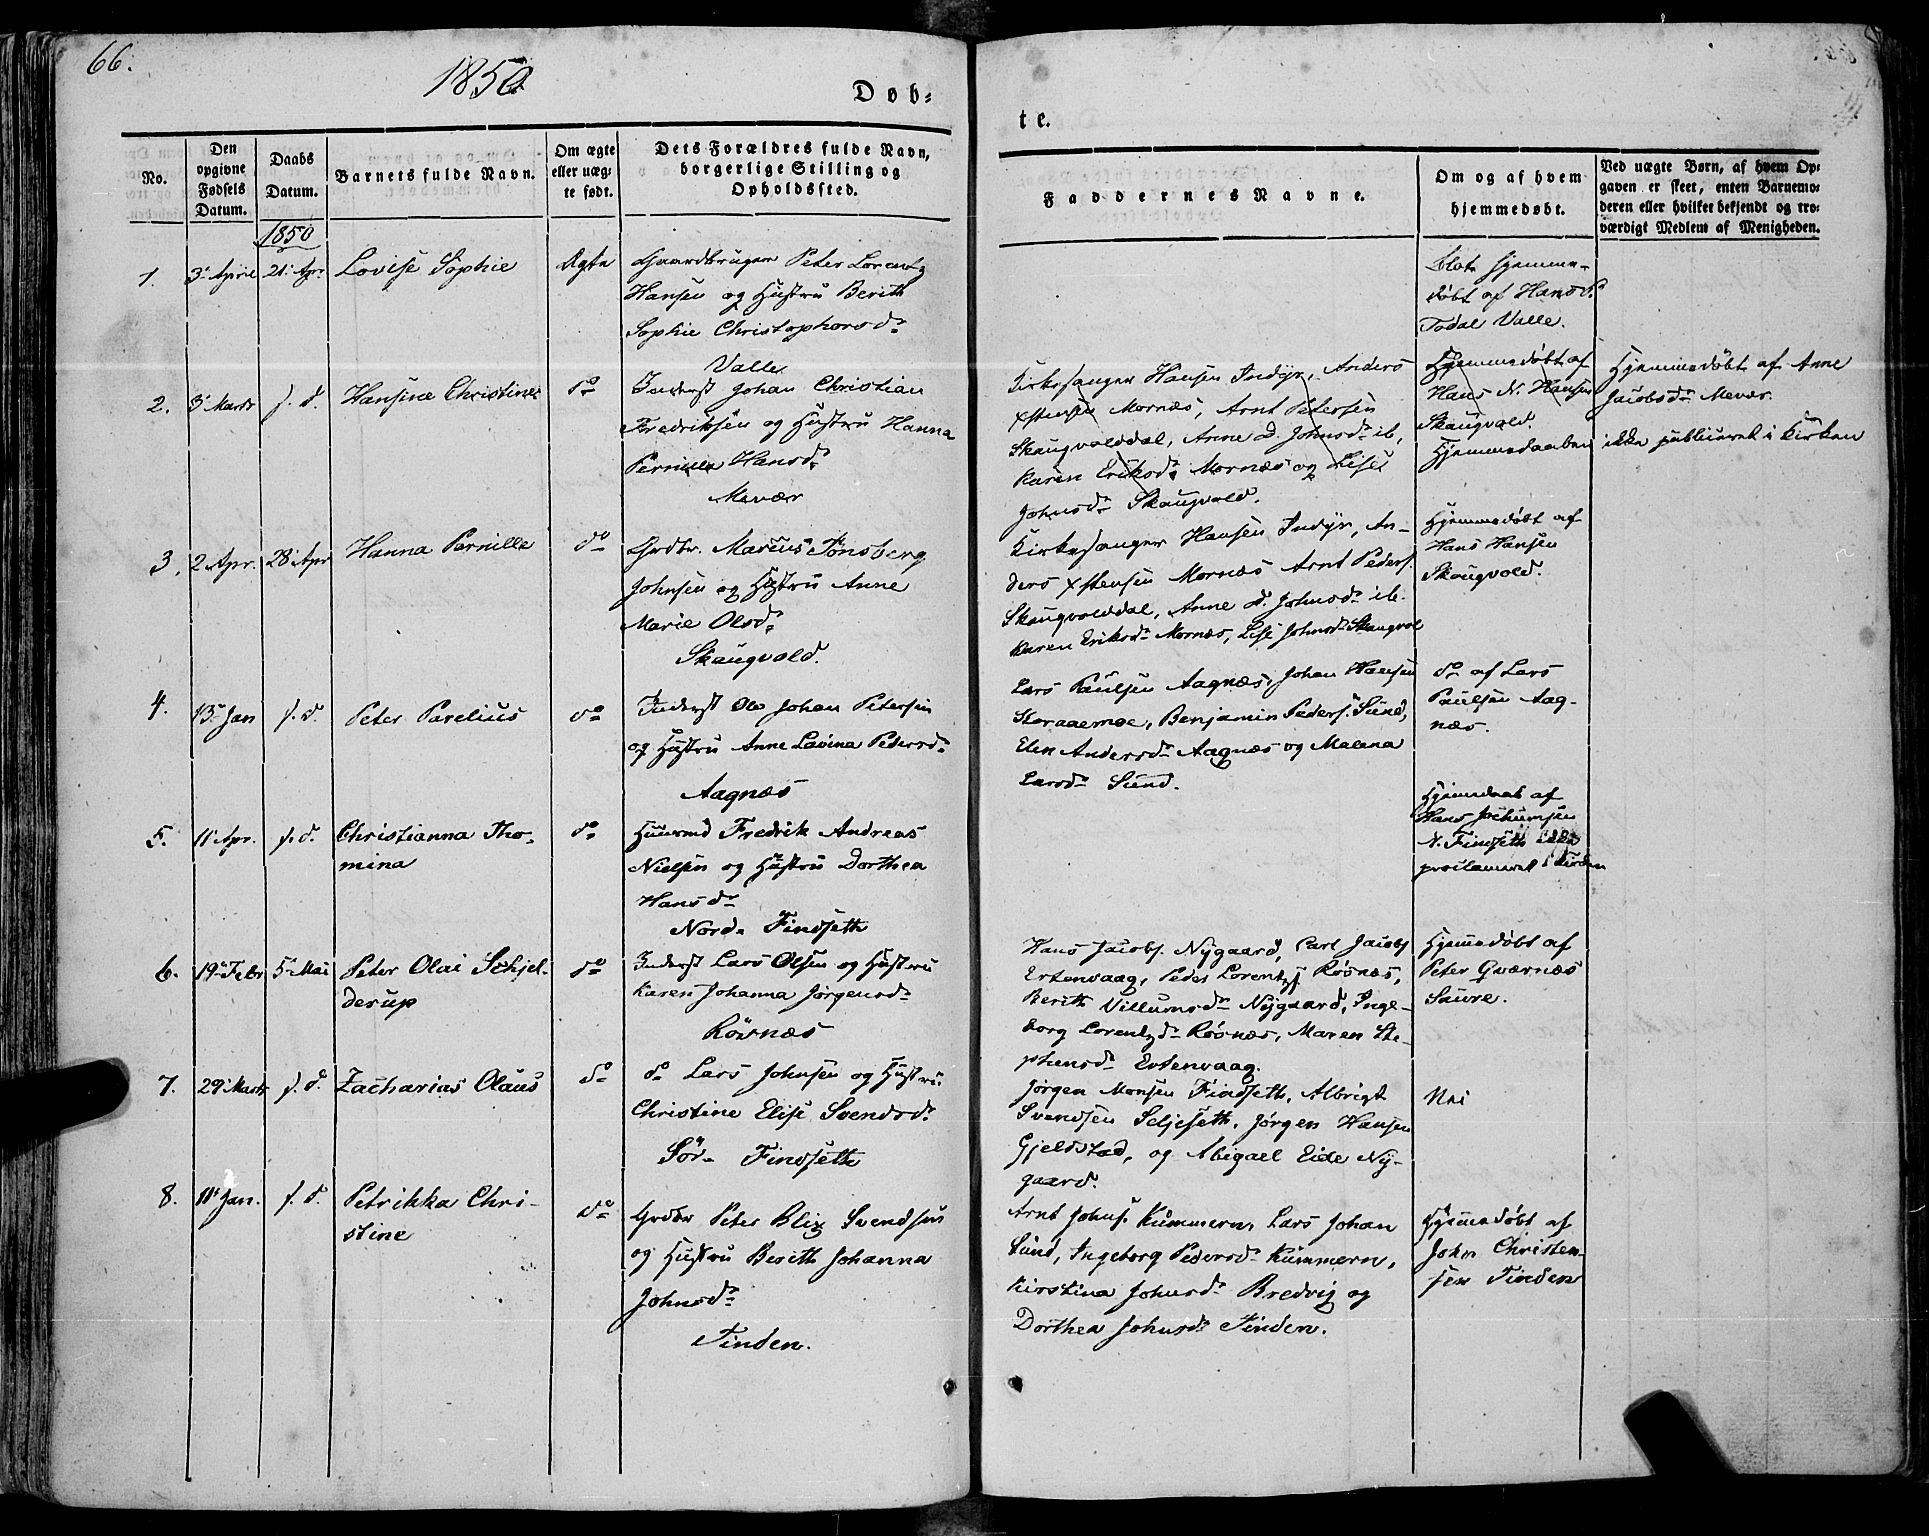 66.
1850
Døb=
te.
No.
Den
opgivne
Fødsels
Datum.
Daabs
Datum.
Barnets fulde Navn.
Om ægte
eller uæg=
te født.
Dets Forældres fulde Navn,
borgerlige Stilling og
Opholdssted.
Faddernes Navne.
Om og af hvem
hjemmedøbt.
Ved uægte Børn, af hvem Op=
gaven er skeet, enten Barnemo=
deren eller hvilket bekjendt og tro=
værdigt Medlem af Menigheden.
1850
1.
3. April
21. Apr.
Lovise Sophie
Ægte
Gaardbruger Peter Lorentz
Hansen og Hustru Berith
Sophie Christophersd.
Valle
Hjemme-
døbt af Hans
Todal Valle.
2.
3 Marts
s. d.
Hansine Christine
do
Inderst Johan Christian
Fredriksen og Hustru Hanna
Pernille Hansd.
Mevær
Kirkesanger Hansen Indyr, Anders
Xstensen Mornæs, Arnt Petersen
Skaugvolddal, Anne d. Johnsd. ib,
Karen Eriksd. Mornæs og Lise
Johnsd. Skaugvold.
Hjemmedøbt af
Hans N. Hansen
Skaugvold.
Hjemmedaaben
Hjemmedøbt af Anne
Jacobsd. Mevær.
ikke publiceret i Kirken
3.
2 Apr.
28 Apr
Hanna Pernille
do
Grdbr. Marcus Tønsberg
Johnsen og Hustru Anne
Marie Olsd.
Skaugvold.
Kirkesanger Hansen Indyr, An-
ders Xstensen Mornæs Arnt Peders.
Skaugvolddal, Anne d. Johnsd. ib.
Karen Eriksd. Mornæs, Lise Johnsd. Skaugvol
Hjemmedøbt af
Hans Hansen
Skaugvold.
4.
13. Jan
s. d.
Peter Parelius
do
Inderst Ole Johan Petersen
og Hustru Anne Lavina Pedersd.
Aagnæs
Lars Paulsen Aagnæs, Johan Hansen
Storaamoe, Benjamin Peders. Sund,
Elen Andersd. Aagnæs og Malena
Larsd. Sund.
do af Lars
Paulsen Aag-
næs.
5.
11 Apr.
s. d.
Christianna Tho-
mina
do
Huusmd Fredrik Andreas
Nielsen og Hustru Dorthea
Hansd.
Nord- Findseth
Hjemmedaab af
Hans Jochumsen
N. Findseth ikke
proclameret i Kirken
6.
19. Febr
5 Mai
Peter Olai Schjel-
derup
do
Inderst Lars Olsen og Hustru
Karen Johanna Jørgensd.
Rösnæs
Hans Jacobs. Nygaard, Carl Jacobs
Ertenvaag, Peder Lorentzs Røsnæs,
Berith Villumsd. Nygaard, Inge-
borg Lorentzd. Røsnæs, Maren Ste-
phensd. Ertenvaag.
Hjemmedøbt af
Peter Gværnæs
Saure.
7.
29. Marts
s. d.
Zacharias Olaus
do
do Lars Johnsen og Hustru
Christine Elise Svendsd.
Sör- Findseth
Jørgen Monsen Findseth, Albrigt
Svendsen Seljeseth, Jørgen Hansen
Gjeldstad, og Abigael Eide Ny-
gaard.
Nei
8.
11. Jan.
s. d.
Petrikka Chri-
stine
do
Grdbr Peter Blix Svendsen
og Hustru Berith Johanna
Johnsd.
Tinden.
Arnt Johns. Kummern, Lars Johan
Sund, Ingeborg Pedersd. Kummern,
Kirstina Johnsd. Bredvig og
Dorthea Johnsd. Tinden.
Hjemmedøbt af
John Christen-
sen Tinden